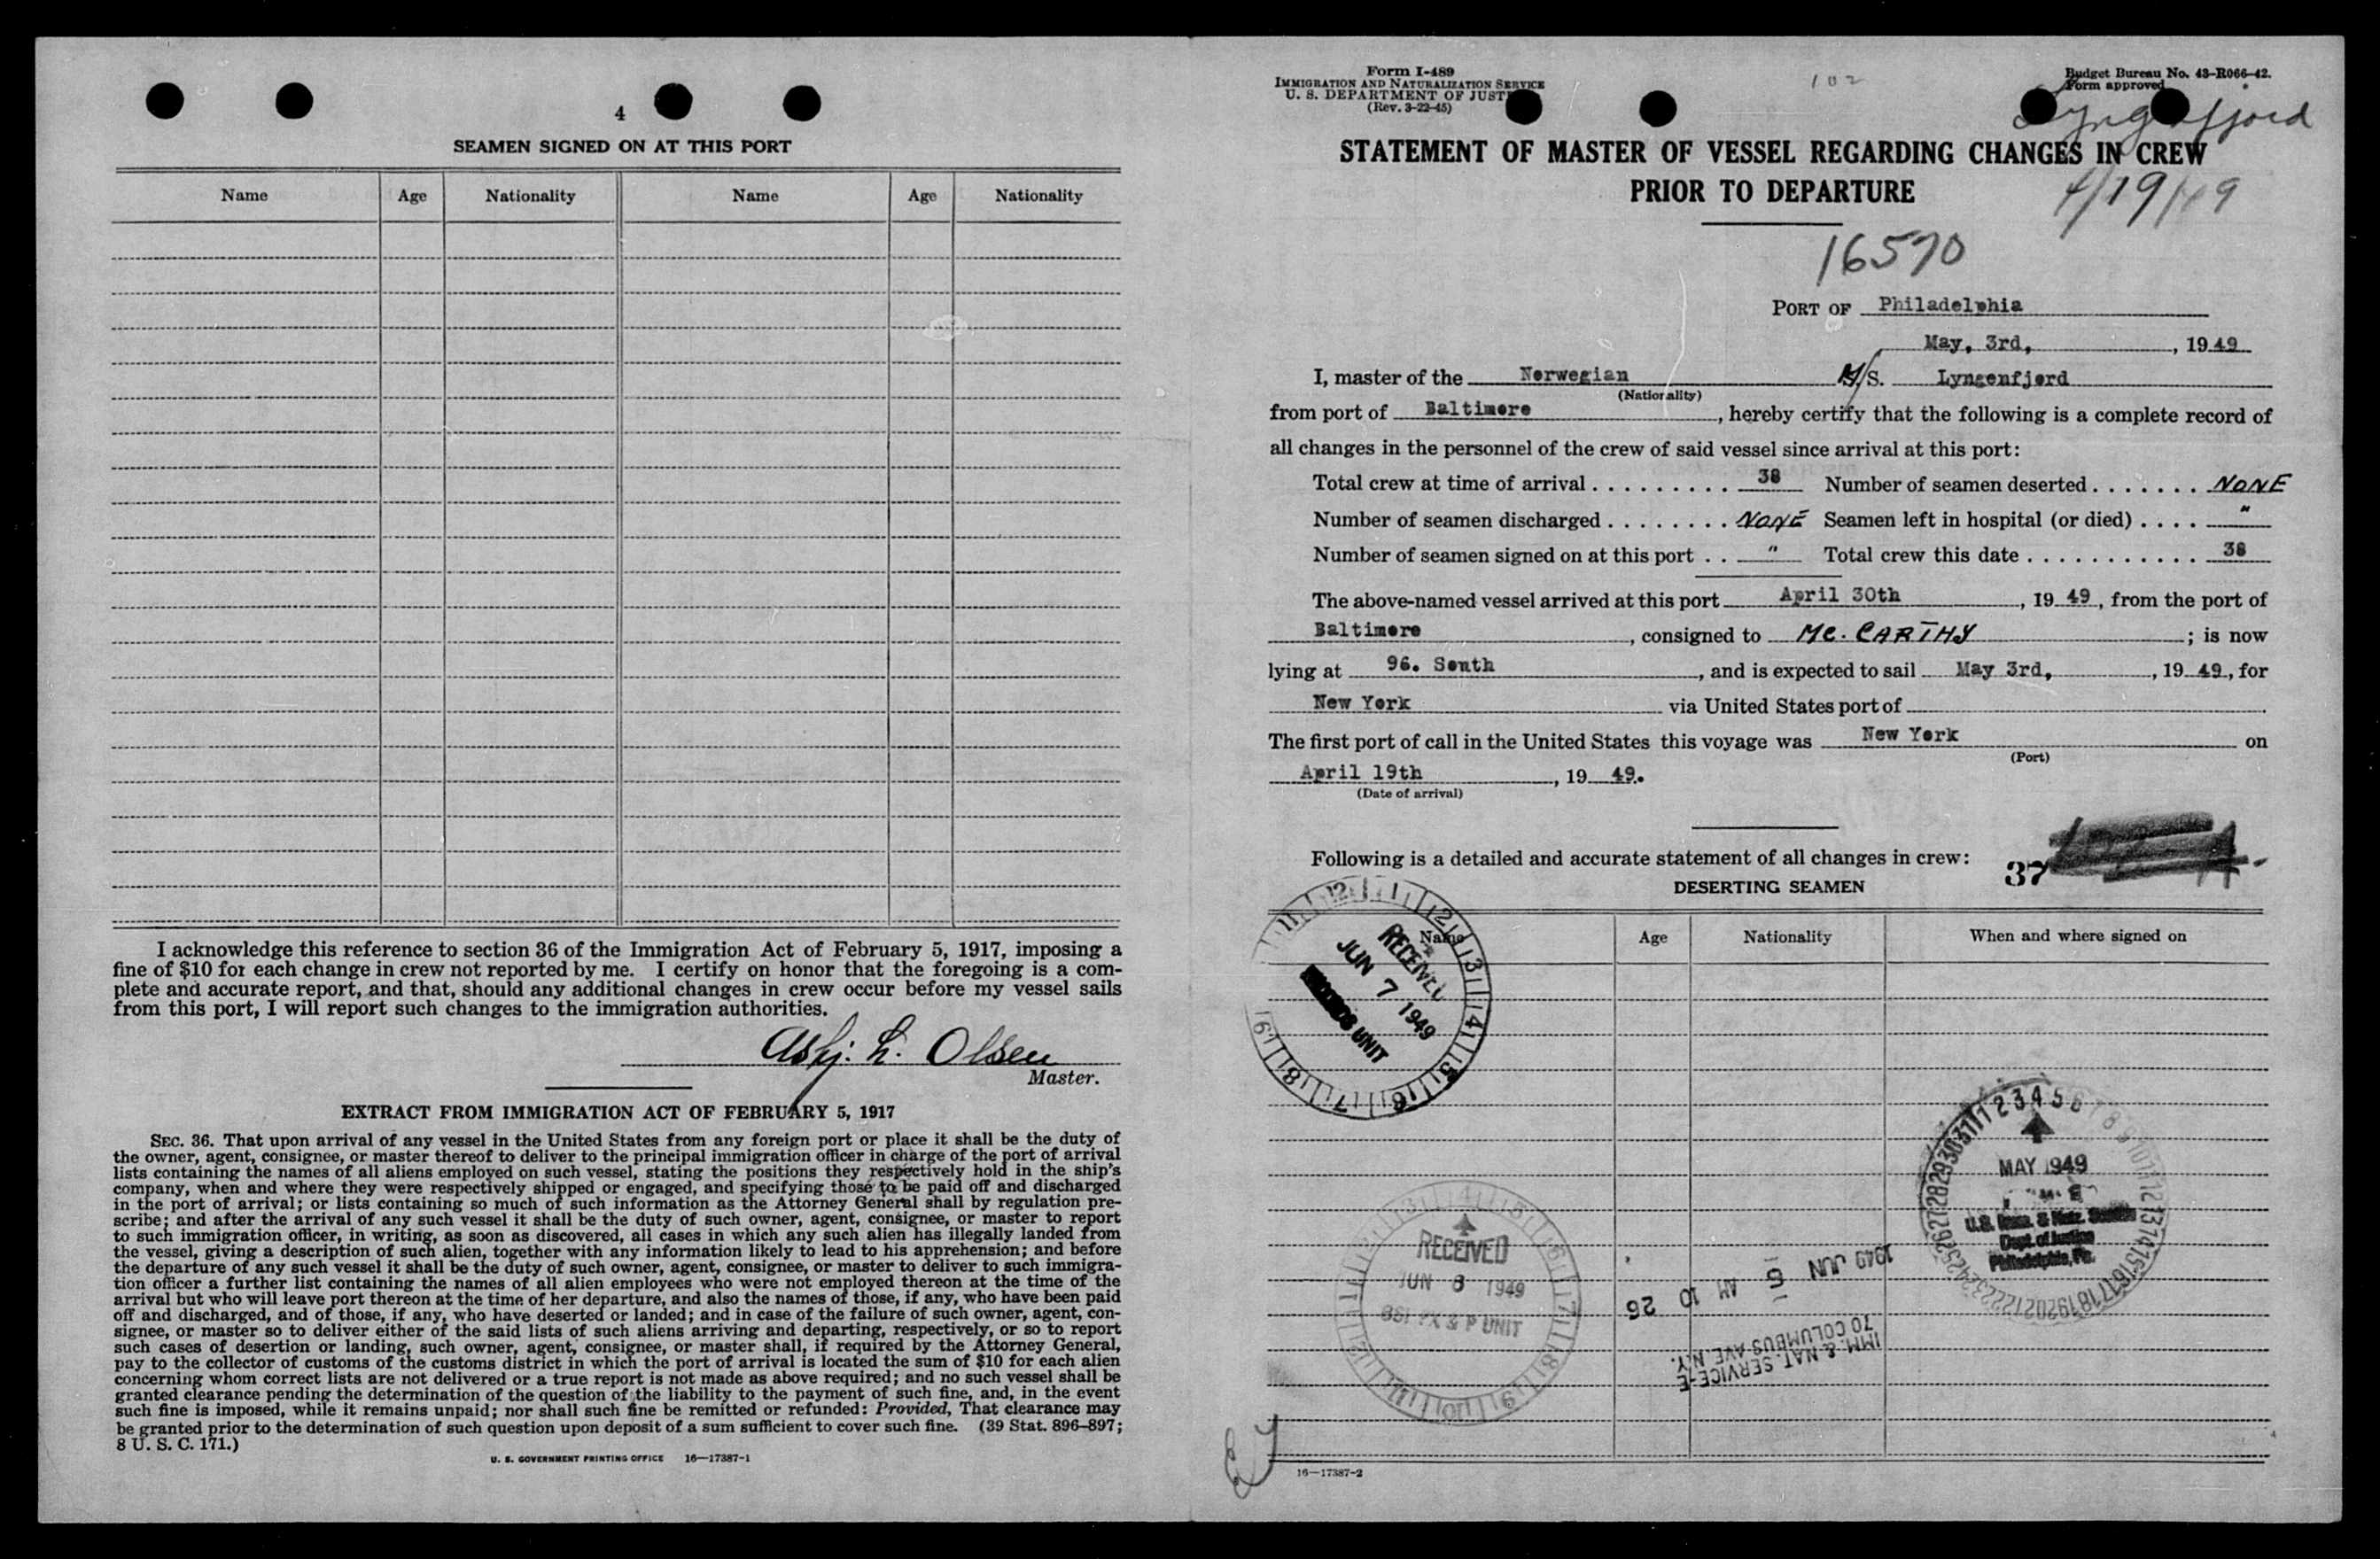 4
SEAMEN SIGNED ON AT THIS PORT
Name Age Nationality Name Age Nationality
I acknowledge this reference to section 36 of the Immigration Act of February 5, 1917, imposing a
fine of $10 for each change in crew not reported by me. I certify on honor that the foregoing is a com-
plete and accurate report, and that, should any additional changes in crew occur before my vessel sails
from this port, I will report such changes to the immigration authorities.
Asbj. L. Olsen
Master.
EXTRACT FROM IMMIGRATION ACT OF FEBRUARY 5, 1917
SEC. 36. That upon arrival of any vessel in the United States from any foreign port or place it shall be the duty of
the owner, agent, consignee, or master thereof to deliver to the principal immigration officer in charge of the port of arrival
lists containing the names of all aliens employed on such vessel, stating the positions they respectively hold in the ship's
company, when and where they were respectively shipped or engaged, and specifying those to be paid off and discharged
in the port of arrival; or lists containing so much of such information as the Attorney General shall by regulation pre-
scribe; and after the arrival of any such vessel it shall be the duty of such owner, agent, consignee, or master to report
to such immigration officer, in writing, as soon as discovered, all cases in which any such alien has illegally landed from
the vessel, giving a description of such alien, together with any information likely to lead to his apprehension; and before
the departure of any such vessel it shall be the duty of such owner, agent, consignee, or master to deliver to such immigra-
tion officer a further list containing the names of all alien employees who were not employed thereon at the time of the
arrival but who will leave port thereon at the time of her departure, and also the names of those, if any, who have been paid
off and discharged, and of those, if any, who have deserted or landed; and in case of the failure of such owner, agent, con-
signee, or master so to deliver either of the said lists of such aliens arriving and departing, respectively, or so to report
such cases of desertion or landing, such owner, agent, consignee, or master shall, if required by the Attorney General,
pay to the collector of customs of the customs district in which the port of arrival is located the sum of $10 for each alien
concerning whom correct lists are not delivered or a true report is not made as above required; and no such vessel shall be
granted clearance pending the determination of the question of the liability to the payment of such fine, and, in the event
such fine is imposed, while it remains unpaid; nor shall such fine be remitted or refunded: Provided, That clearance may
be granted prior to the determination of such question upon deposit of a sum sufficient to cover such fine. (39 Stat. 896–897;
8 U. S. C. 171.)
U. S. GOVERNMENT PRINTING OFFICE 16—17387-1
Form I-489
IMMIGRATION AND NATURALIZATION SERVICE
U. S. DEPARTMENT OF JUSTICE
(Rev. 3-22-45)
102
Budget Bureau No. 43-R066-42.
Form approved.
Lyngenfjord
STATEMENT OF MASTER OF VESSEL REGARDING CHANGES IN CREW
PRIOR TO DEPARTURE
4/19/49
16570
PORT OF Philadelphia
May, 3rd, , 1949
I, master of the Norwegian M/S. Lyngenfjord
(Nationality)
from port of Baltimore , hereby certify that the following is a complete record of
all changes in the personnel of the crew of said vessel since arrival at this port:
Total crew at time of arrival . . . . . . . . . 38 Number of seamen deserted . . . . . . . NONE
Number of seamen discharged . . . . . . . . NONE Seamen left in hospital (or died) . . . . "
Number of seamen signed on at this port . . " Total crew this date . . . . . . . . . . . . 38
The above-named vessel arrived at this port April 30th , 19 49 , from the port of
Baltimore , consigned to MC. CARTHY ; is now
lying at 96. South , and is expected to sail May 3rd, , 19 49 , for
New York via United States port of
The first port of call in the United States this voyage was New York on
(Port)
April 19th , 19 49.
(Date of arrival)
Following is a detailed and accurate statement of all changes in crew:
37
DESERTING SEAMEN
Name Age Nationality When and where signed on
12 1 2 3 4 5 6 7 8 9 11
RECEIVED
JUN 7 1949
RECORDS UNIT
MAY 1949
U.S. Imm. & Natz. Service
Dept. of Justice
Philadelphia, Pa.
RECEIVED
JUN 8 1949
1949 JUN 5 AM 10 26
IMM. & NAT. SERVICE-E
70 COLUMBUS AVE. N.Y.
16—17387-2